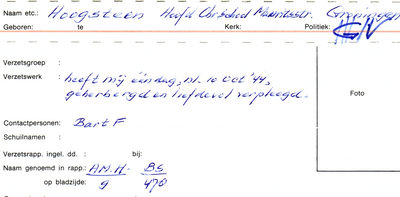 Naam etc.: Hoogsteen Hoofd Chr. School Mauritsstr. Groningen
Geboren: te Kerk: Politiek:
Verzetsgroep :
Verzetswerk : heeft mij ééndag, nl. 10 Oct '44,
geherbergd en liefdevol verpleegd.
Foto
Contactpersonen: Bart F
Schuilnamen :
Verzetsrapp. ingel. dd. : bij:
Naam genoemd in rapp.: AM.H- BS
op bladzijde: 9 470